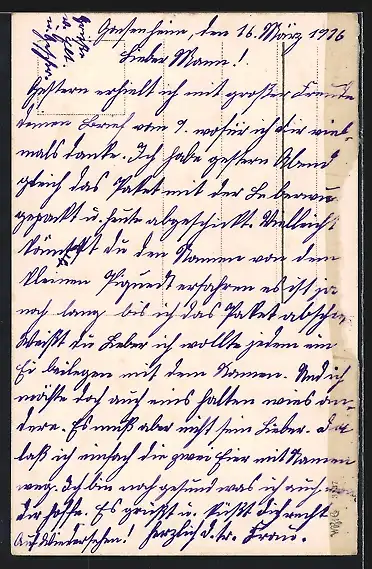 Geisenheim, den 16. März 1916
Lieber Mann!
Gestern erhielt ich mit großer Freude
deinen Brief vom 9. wofür ich dir viel-
mals danke. Ich habe gestern Abend
gleich das Paket mit der Leberwu
gepackt u. heute abgeschickt. Vielleicht
könntest du den Namen von dem
kleinen erfahren es ist ja
noch lang bis ich das Paket abschi
Weißt du Lieber ich wollte jedem ein
Ei beilegen mit dem Namen. Und ich
möchte doch auch eins halten wies an-
dere. Es muß aber nicht sein Lieber. Da
laß ich einfach die zwei Eier mit Namen
weg. Ich bin noch gesund was ich auch von
dir hoffe. Es grüßt u. küßt dich recht
herzlich d. tr. Frau.
Auf Wiedersehen!